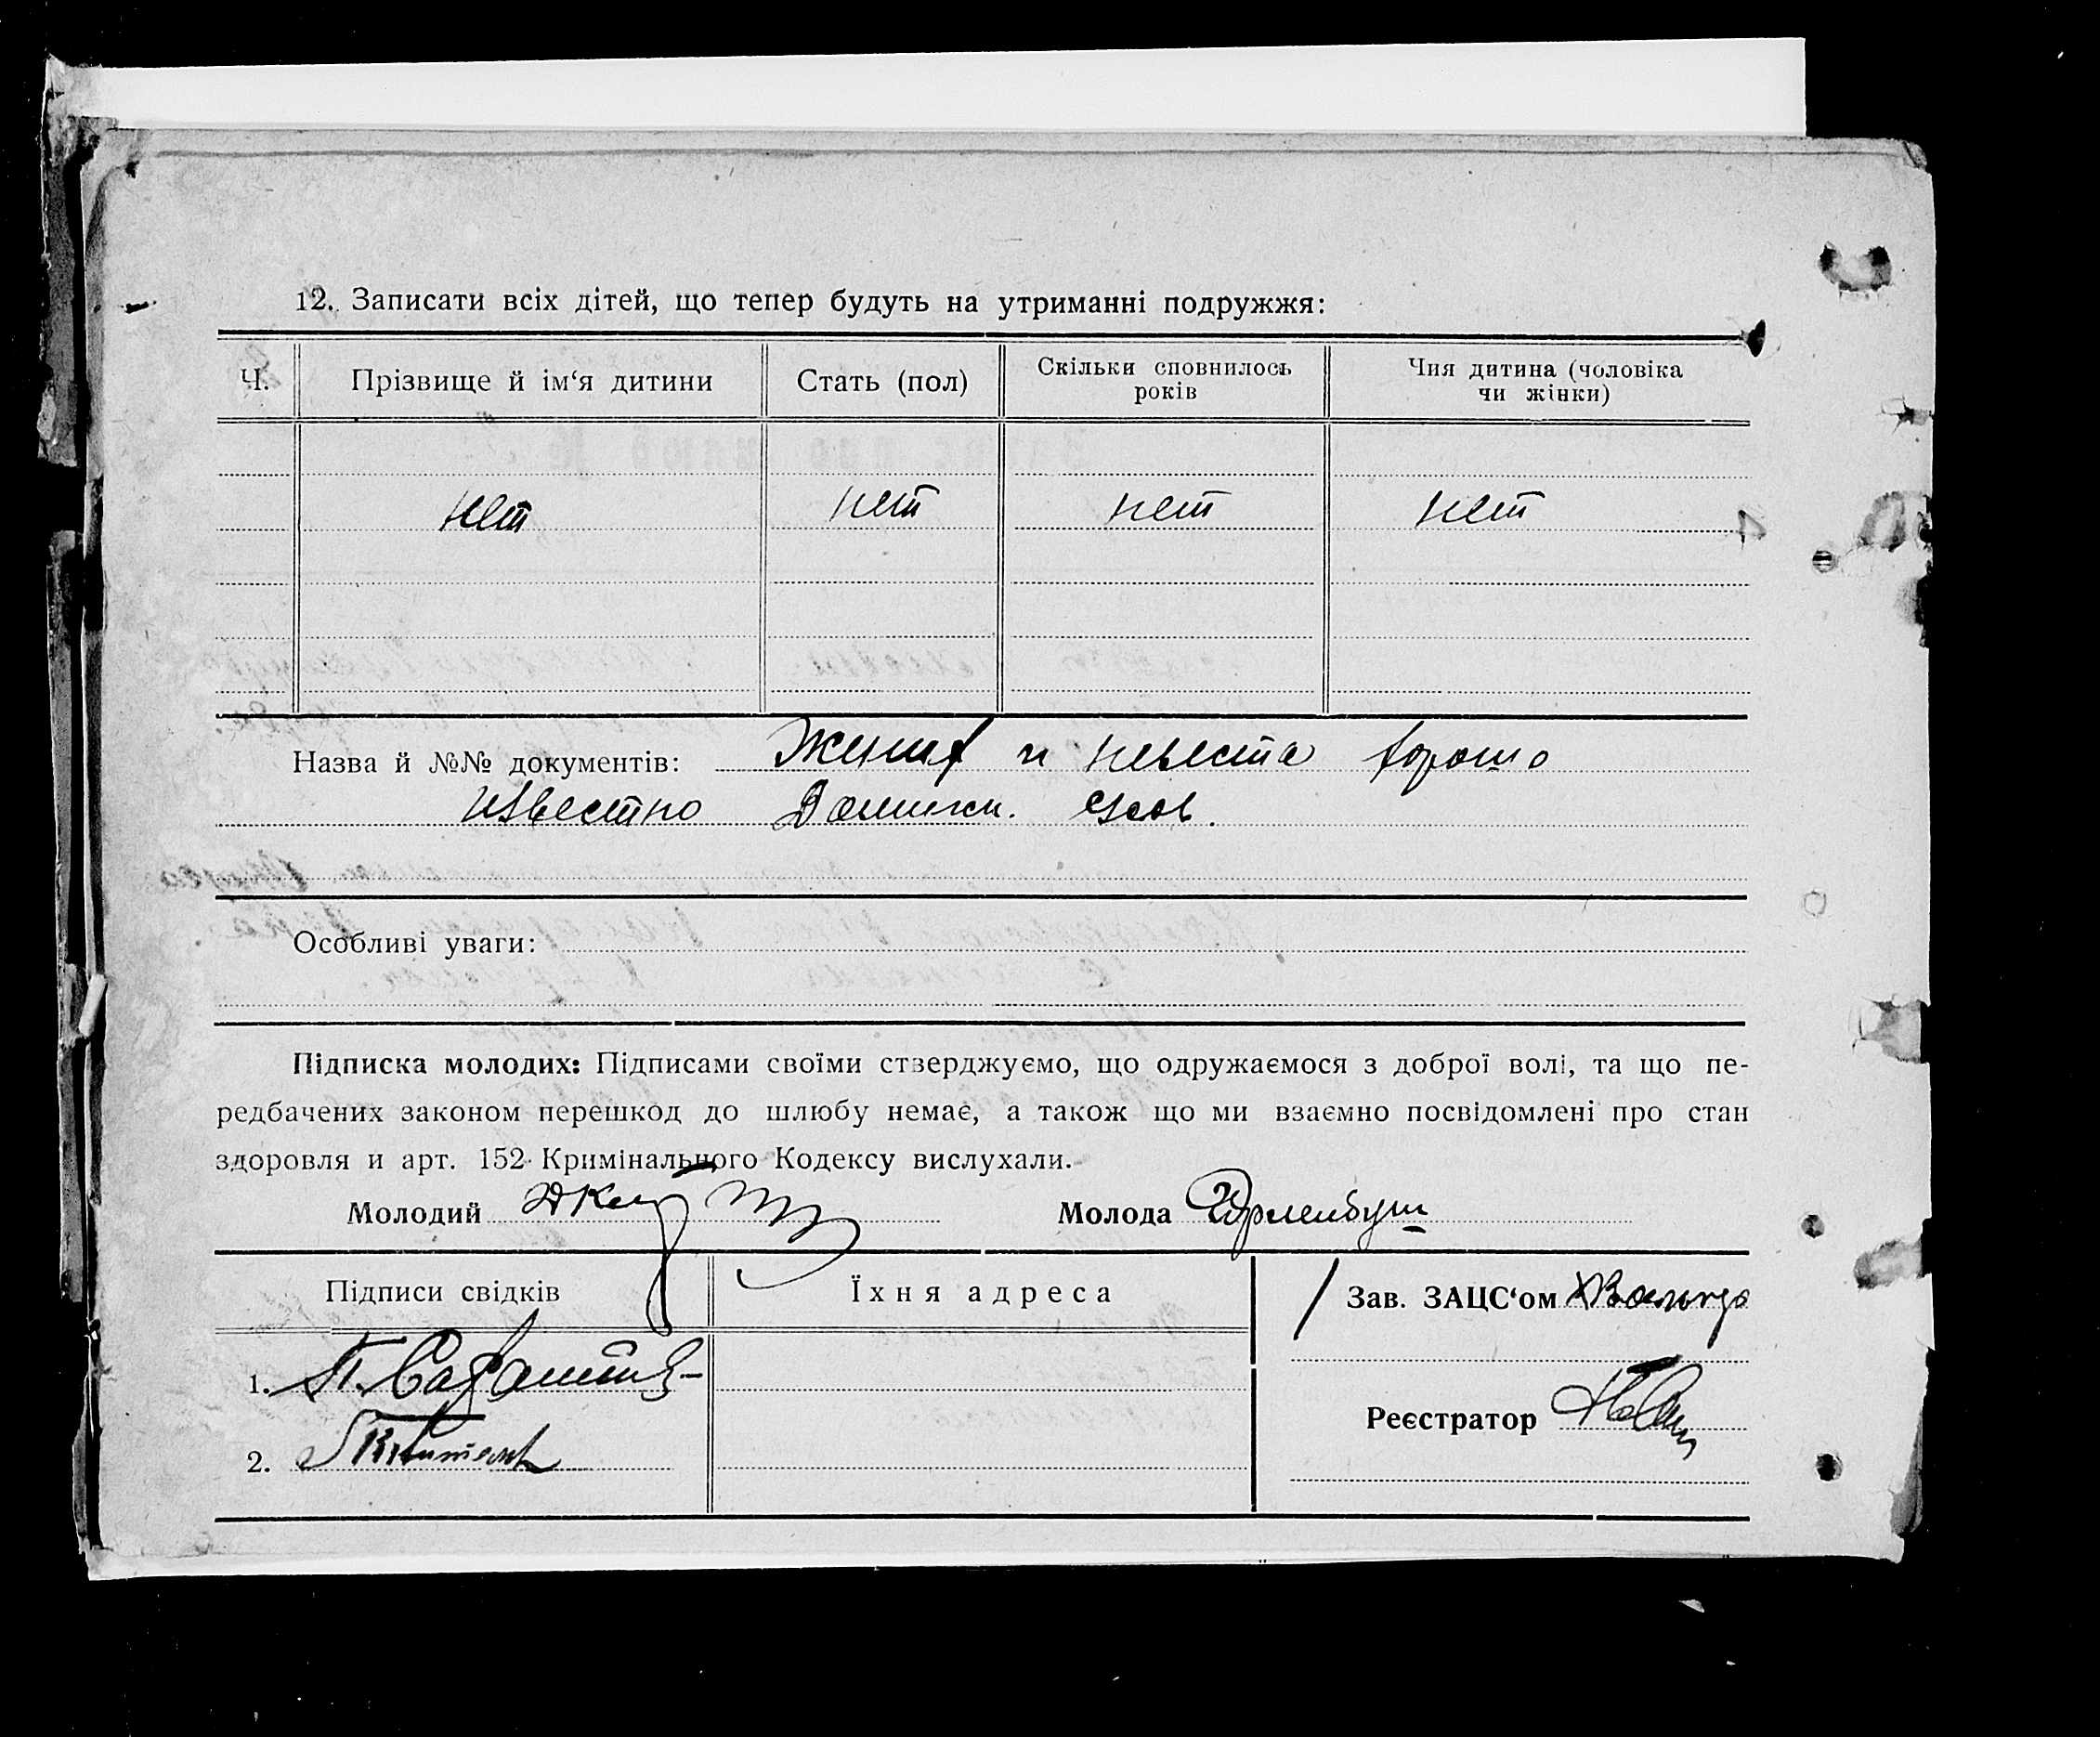 12. Записати всіх дітей, що тепер будуть на утриманні подружжя:
Ч. Прізвище й ім‘я дитини Стать (пол) Скільки сповнилось років Чия дитина (чоловіка чи жінки)
нет нет нет нет
Назва й №№ документів: Жених и невеста хорошо
известно
Особливі уваги:
Підписка молодих: Підписами своїми стверджуємо, що одружаємося з доброї волі, та що пе-
редбачених законом перешкод до шлюбу немає, а також що ми взаємно посвідомлені про стан
здоровля и арт. 152 Кримінального Кодексу вислухали.
Молодий Молода
Підписи свідків Їхня адреса Зав. ЗАЦС‘ом
1.
Реєстратор
2.